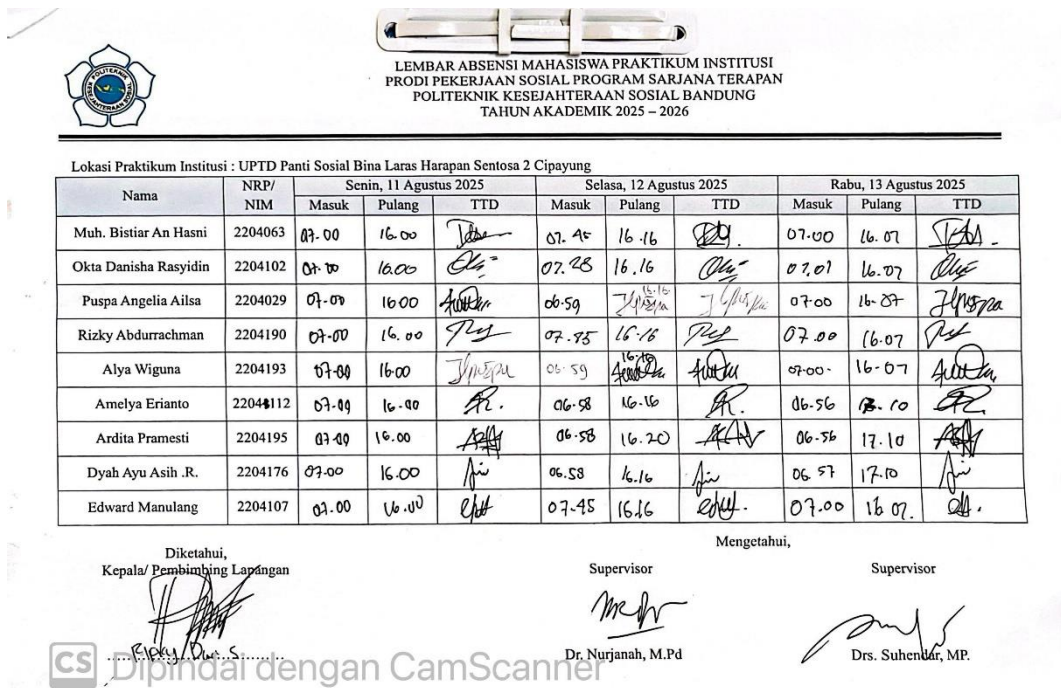 POLITEKNIK
KESEJAHTERAAN SOSIAL
LEMBAR ABSENSI MAHASISWA PRAKTIKUM INSTITUSI
PRODI PEKERJAAN SOSIAL PROGRAM SARJANA TERAPAN
POLITEKNIK KESEJAHTERAAN SOSIAL BANDUNG
TAHUN AKADEMIK 2025 – 2026
Lokasi Praktikum Institusi : UPTD Panti Sosial Bina Laras Harapan Sentosa 2 Cipayung
Nama NRP/ NIM Senin, 11 Agustus 2025 Selasa, 12 Agustus 2025 Rabu, 13 Agustus 2025
Masuk Pulang TTD Masuk Pulang TTD Masuk Pulang TTD
Muh. Bistiar An Hasni 2204063 07-00 16.00 07.45 16.16 07.00 16.07
Okta Danisha Rasyidin 2204102 07.00 16.00 07.28 16.16 07.01 16.07
Puspa Angelia Ailsa 2204029 07-00 16.00 06.59 16.16 07-00 16-07
Rizky Abdurrachman 2204190 07-00 16.00 16-16 07.00 16.07
Alya Wiguna 2204193 07-00 16.00 06.59 16.16 07.00- 16-07
Amelya Erianto 07-00 16-00 06-58 16-16 06-56
Ardita Pramesti 2204195 07-00 16.00 06-58 16.20 06-56 17.10
Dyah Ayu Asih .R. 2204176 07.00 16.00 06.58 16.16 06.57 17-10
Edward Manulang 2204107 07.00 16.00 07-45 16.16 07.00 16 07.
Diketahui,
Kepala/ Pembimbing Lapangan
Mengetahui,
Supervisor Supervisor
Dr. Nurjanah, M.Pd Drs. Suhendar, MP.
CS Dipindai dengan CamScanner